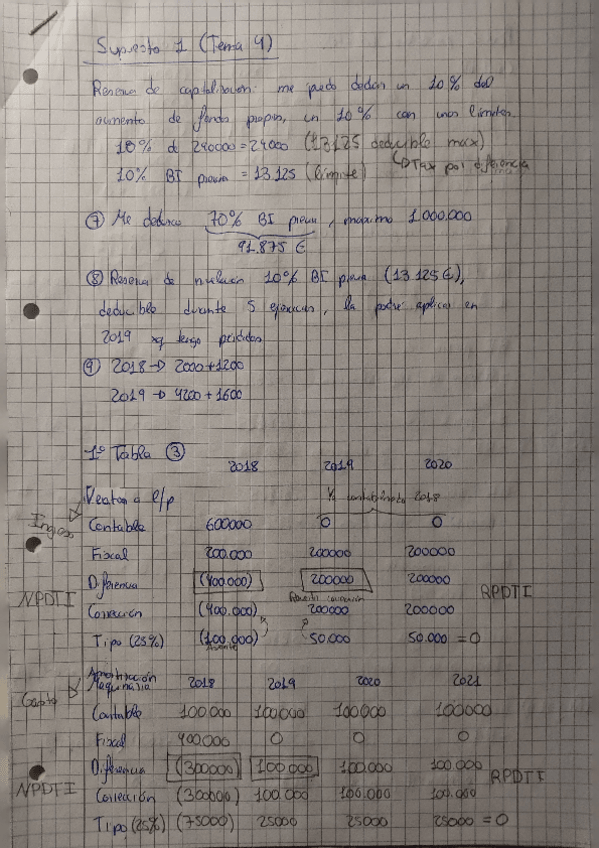 Supuesto 1 (Tema 4)
Reserva de capitalización: me puedo deducir un 10% del
aumento de fondos propios, un 10% con unos límites
10% de 240000 = 24000 (13125 deducible max)
10% BI previa = 13.125 (límite) ↳D Tax por diferencia
⑦ Me deduzco 70% BI previa, máximo 1.000.000
91.875 €
⑧ Reserva de nivelación 10% BI previa (13.125€),
deducible durante 5 ejercicios, la podré aplicar en
2019 xq tengo pérdidas
⑨ 2018 → 2000+1200
2019 → 4200 + 1600
1º Tabla ③
2018 2019 2020
Ventas a l/p Ya contabilizada 2018
Ingreso Contable 600000 0 0
Fiscal 200.000 200000 200000
Diferencia (400.000) 200000 200000
NPDTI RPDTI
Corrección (400.000) 200000 200000
Tipo (25%) (100.000) 50.000 50.000 = 0
Amortización
Maquinaria 2018 2019 2020 2021
Gasto
Contable 100.000 100.000 100.000 100000
Fiscal 400.000 0 0 0
Diferencia (300000) 100.000 100.000 100.000
NPDTI RPDTI
Corrección (300000) 100.000 100.000 100.000
Tipo (25%) (75000) 25000 25000 25000 = 0